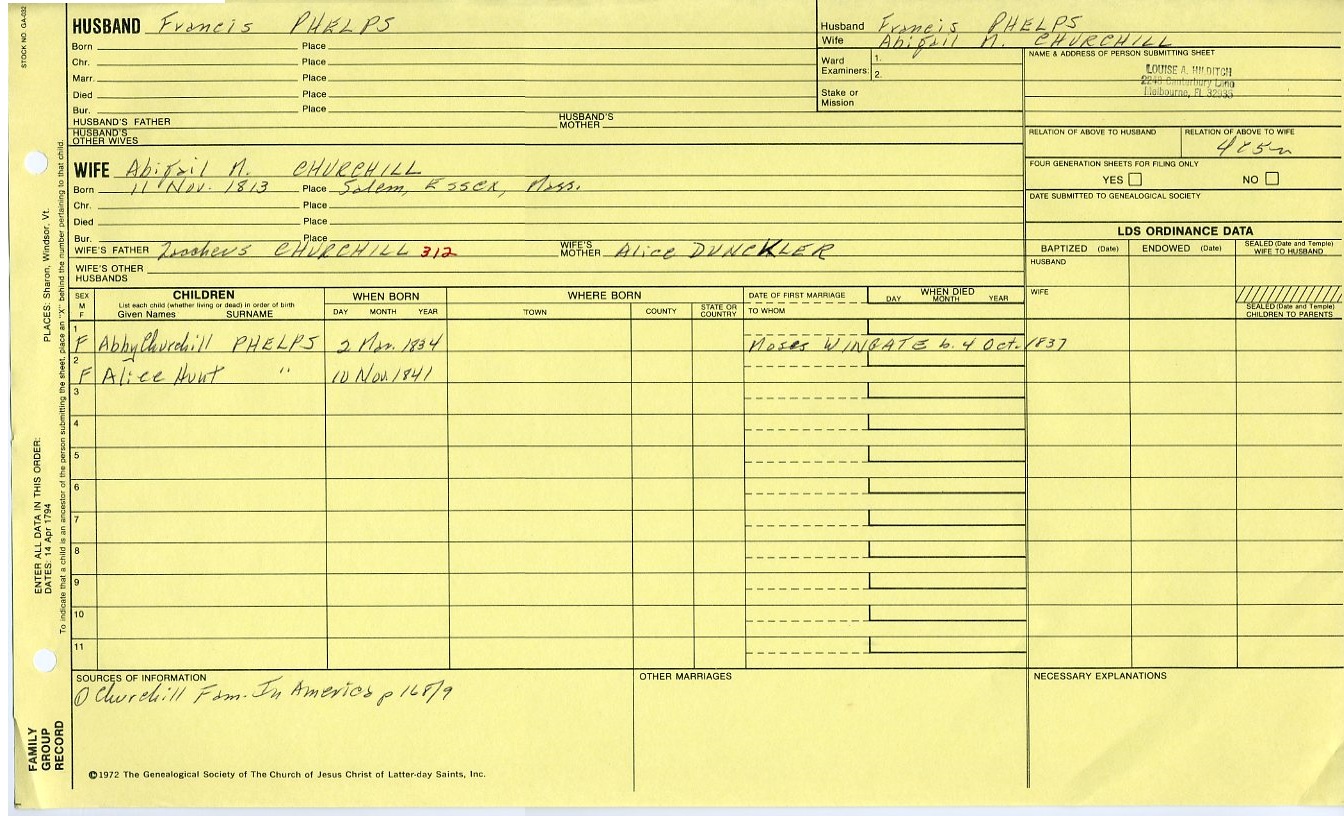 STOCK NO. GA-032
HUSBAND Francis PHELPS
Born Place
Chr. Place
Marr. Place
Died Place
Bur. Place
HUSBAND'S FATHER HUSBAND'S MOTHER
HUSBAND'S OTHER WIVES
Husband Francis PHELPS
Wife Abigail N. CHURCHILL
Ward Examiners: 1.
2.
Stake or Mission
NAME & ADDRESS OF PERSON SUBMITTING SHEET
LOUISE A. HILDITCH
2240 Canterbury Lane
Melbourne, FL 32935
RELATION OF ABOVE TO HUSBAND RELATION OF ABOVE TO WIFE
FOUR GENERATION SHEETS FOR FILING ONLY
YES NO
DATE SUBMITTED TO GENEALOGICAL SOCIETY
WIFE Abigail N. CHURCHILL
Born 11 Nov. 1813 Place Salem, Essex, Mass.
Chr. Place
Died Place
Bur. Place
WIFE'S FATHER CHURCHILL 312 WIFE'S MOTHER Alice DUNCKLER
WIFE'S OTHER HUSBANDS
LDS ORDINANCE DATA
BAPTIZED (Date) ENDOWED (Date) SEALED (Date and Temple) WIFE TO HUSBAND
HUSBAND
WIFE
SEALED (Date and Temple) CHILDREN TO PARENTS
SEX M F
CHILDREN
List each child (whether living or dead) in order of birth
Given Names SURNAME
WHEN BORN
DAY MONTH YEAR
WHERE BORN
TOWN COUNTY STATE OR COUNTRY
DATE OF FIRST MARRIAGE
TO WHOM
WHEN DIED
DAY MONTH YEAR
1
F Abby Churchill PHELPS 2 Mar. 1834 Moses WINGATE b. 4 Oct. 1837
2
F Alice Hunt " 10 Nov. 1841
3
4
5
6
7
8
9
10
11
SOURCES OF INFORMATION
① Churchill Fam. In America p 168/9
OTHER MARRIAGES
NECESSARY EXPLANATIONS
©1972 The Genealogical Society of The Church of Jesus Christ of Latter-day Saints, Inc.
FAMILY GROUP RECORD
ENTER ALL DATA IN THIS ORDER:
DATES: 14 Apr 1794
PLACES: Sharon, Windsor, Vt.
To indicate that a child is an ancestor of the person submitting the sheet, place an "X" behind the number pertaining to that child.